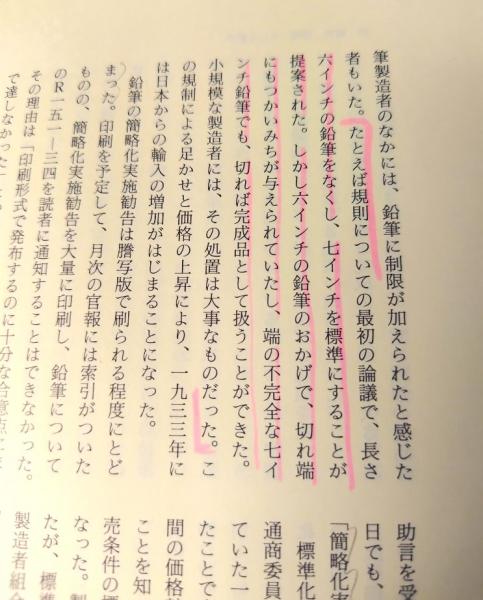 筆製造者のなかには、鉛筆に制限が加えられたと感じた
者もいた。たとえば規則についての最初の論議で、長さ
六インチの鉛筆をなくし、七インチを標準にすることが
提案された。しかし六インチの鉛筆のおかげで、切れ端
にもつかいみちが与えられていたし、端の不完全な七イ
ンチ鉛筆でも、切れば完成品として扱うことができた。
小規模な製造者には、その処置は大事なものだった。こ
の規制による足かせと価格の上昇により、一九三三年に
は日本からの輸入の増加がはじまることになった。
鉛筆の簡略化実施勧告は謄写版で刷られる程度にとど
まった。印刷を予定して、月次の官報には索引がついた
ものの、簡略化実施勧告を大量に印刷し、鉛筆について
のR一五一―三四を読者に通知することはできなかった。
その理由は「印刷形式で発布するのに十分な合意点にま
で達しなかった」
助言を受
日でも、
「簡略化実
標準化
通商委員
ていた一
たことで
間の価格
ことを知
売条件の標
なった。製
たが、標準
製造者組合